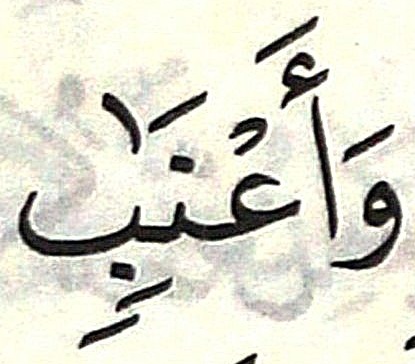 وَأَعْنَٰبٍ